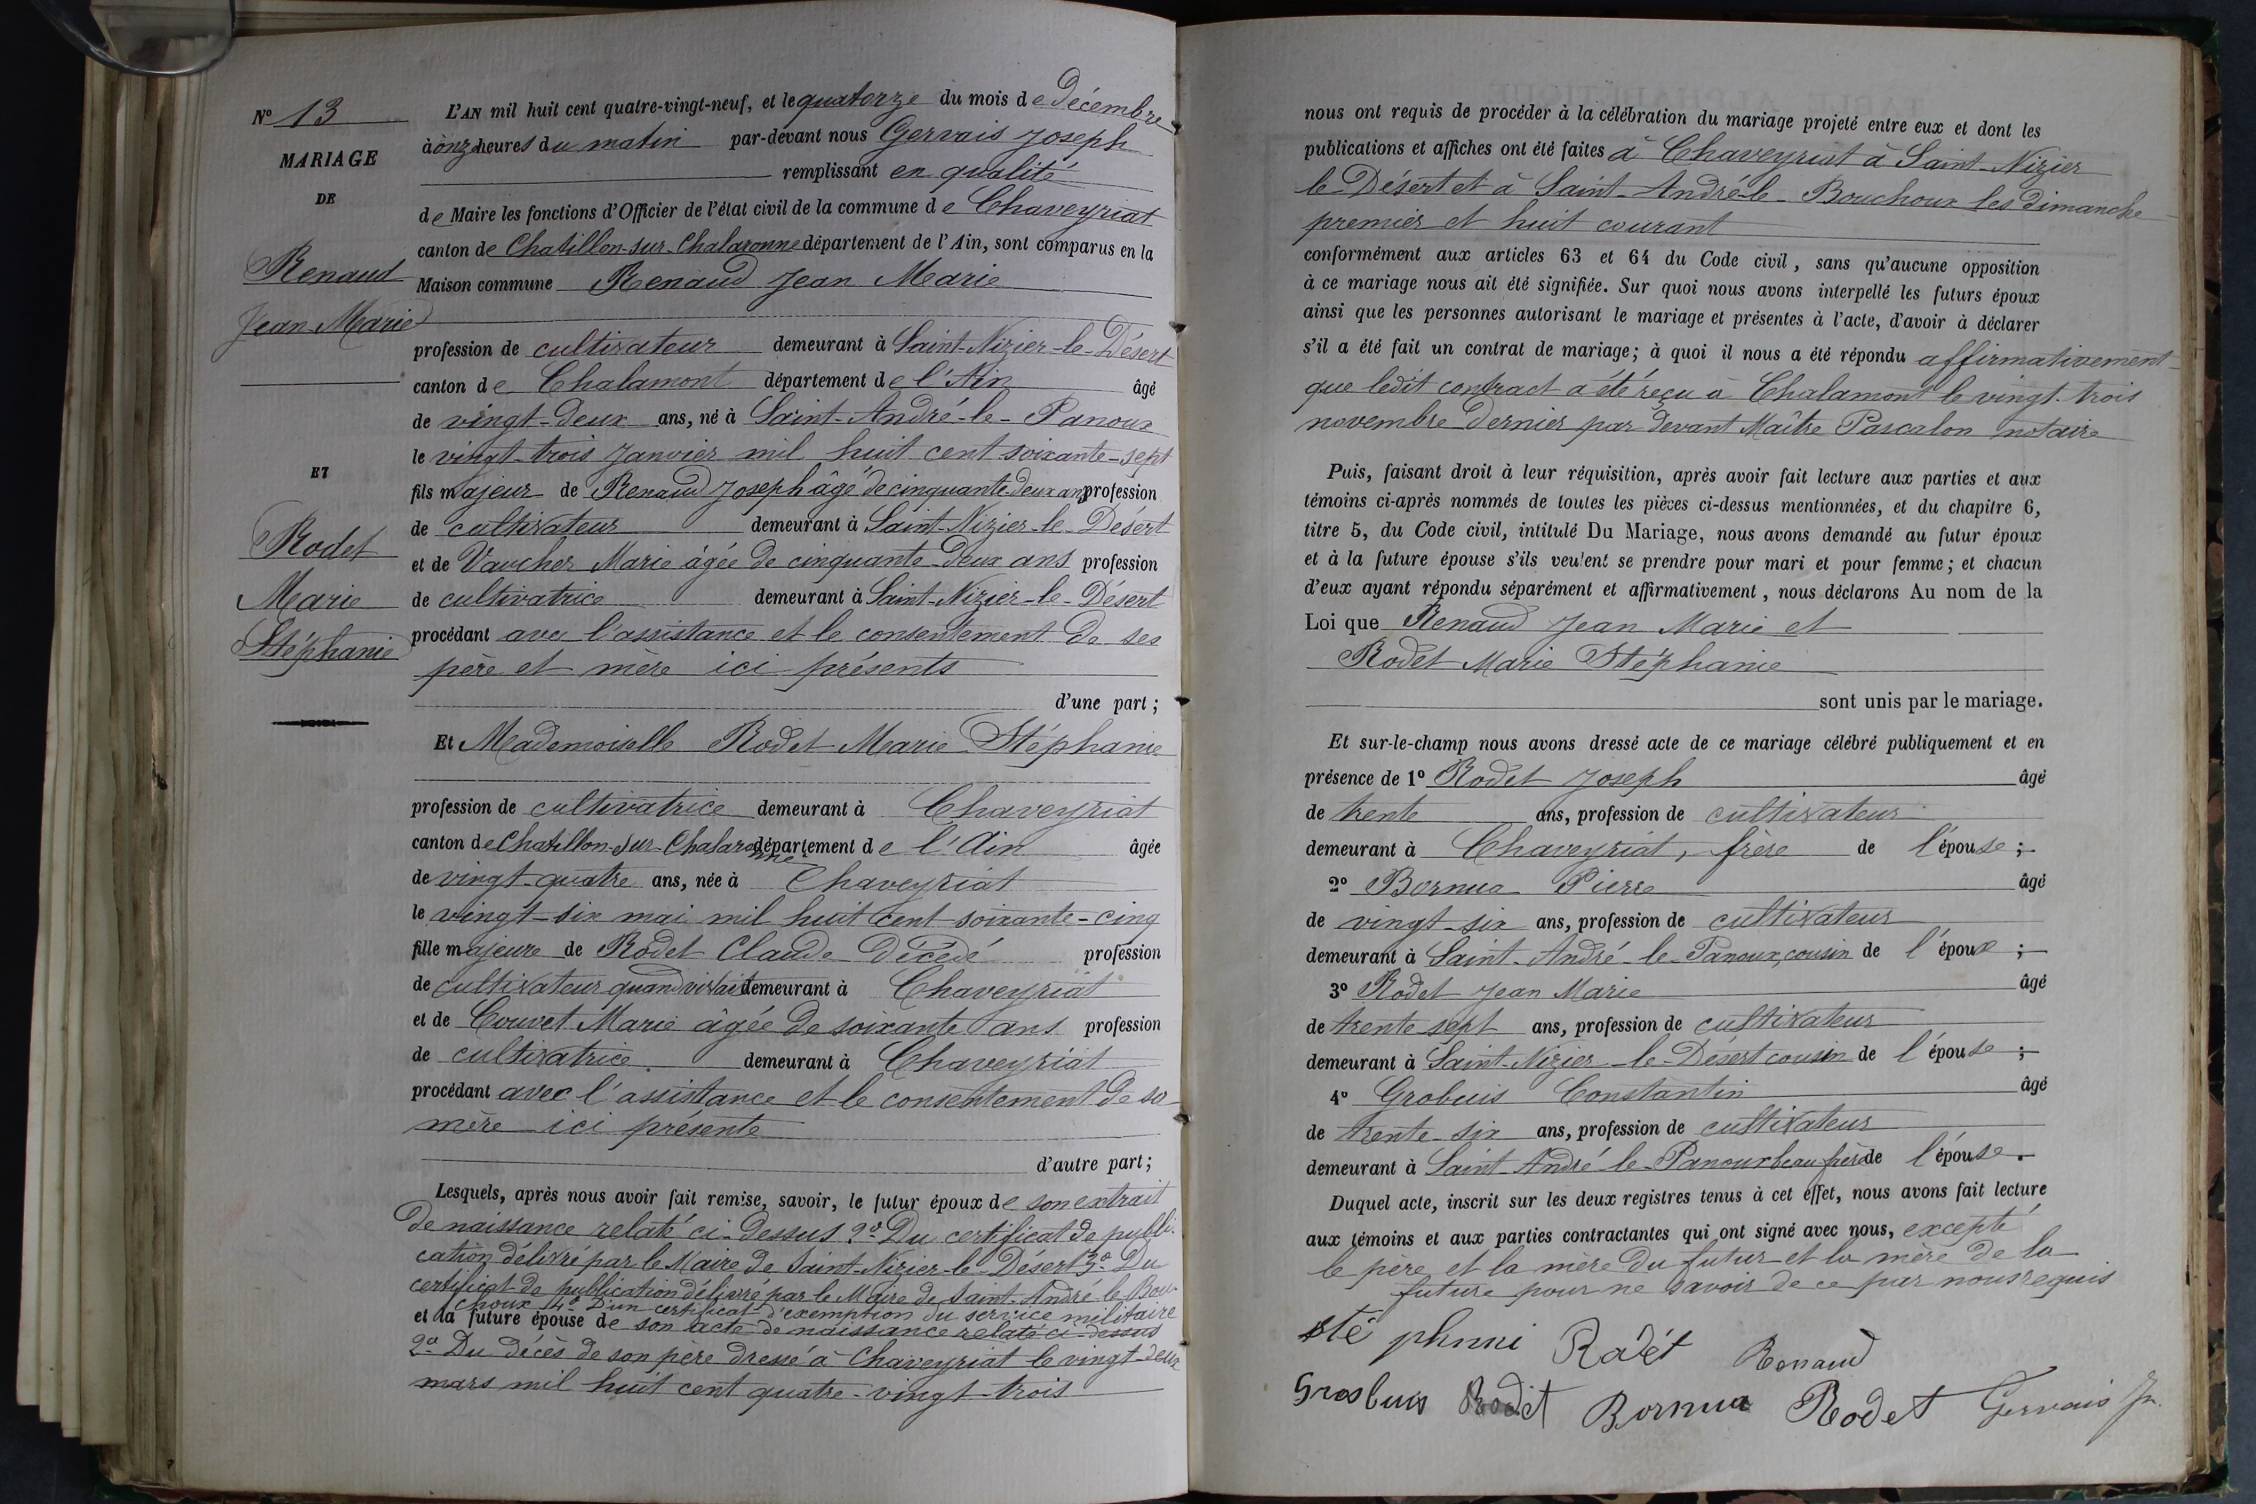 N° 13
MARIAGE
DE
Renaud
Jean Marie
ET
Rodet
Marie
Stéphanie
L'AN mil huit cent quatre-vingt-neuf, et le quatorze du mois de Décembre
à onze heures du matin par-devant nous Gervais Joseph
remplissant en qualité
de Maire les fonctions d'Officier de l'état civil de la commune de Chaveyriat
canton de Chatillon-sur-Chalaronne département de l'Ain, sont comparus en la
Maison commune Renaud Jean Marie
profession de cultivateur demeurant à Saint-Nizier-le-Désert
canton de Chalamont département de l'Ain âgé
de vingt-deux ans, né à Saint-André-le-Panoux
le vingt-trois Janvier mil huit cent soixante-sept
fils majeur de Renaud Joseph âgé de cinquante deux ans profession
de cultivateur demeurant à Saint-Nizier-le-Désert
et de Vaucher Marie âgée de cinquante-deux ans profession
de cultivatrice demeurant à Saint-Nizier-le-Désert
procédant avec l'assistance et le consentement de ses
père et mère ici présents
d'une part;
Et Mademoiselle Rodet Marie Stéphanie
profession de cultivatrice demeurant à Chaveyriat
canton de Chatillon-sur-Chalaronne département de l'Ain âgée
de vingt-quatre ans, née à Chaveyriat
le vingt-six mai mil huit cent soixante-cinq
fille majeure de Rodet Claude Décédé profession
de cultivateur quand vivait demeurant à Chaveyriat
et de Couvet Marie âgée de soixante ans profession
de cultivatrice demeurant à Chaveyriat
procédant avec l'assistance et le consentement de sa
mère ici présente
d'autre part;
Lesquels, après nous avoir fait remise, savoir, le futur époux de son extrait
de naissance relaté ci-dessus 2° Du certificat de publi-
cation délivré par le Maire de Saint-Nizier-le-Désert 3° Du
certificat de publication délivré par le Maire de Saint-André-le-Bou-
choux 4° D'un certificat d'exemption du service militaire
et la future épouse de son acte de naissance relaté ci-dessus
2° Du décès de son père dressé à Chaveyriat le vingt-deux
mars mil huit cent quatre-vingt-trois
nous ont requis de procéder à la célébration du mariage projeté entre eux et dont les
publications et affiches ont été faites à Chaveyriat à Saint-Nizier
le Désert et à Saint-André-le-Bouchoux les dimanche
premier et huit courant
conformément aux articles 63 et 64 du Code civil, sans qu'aucune opposition
à ce mariage nous ait été signifiée. Sur quoi nous avons interpellé les futurs époux
ainsi que les personnes autorisant le mariage et présentes à l'acte, d'avoir à déclarer
s'il a été fait un contrat de mariage; à quoi il nous a été répondu affirmativement
que ledit contract a été reçu à Chalamont le vingt-trois
novembre dernier par devant Maître Pascalon notaire
Puis, faisant droit à leur réquisition, après avoir fait lecture aux parties et aux
témoins ci-après nommés de toutes les pièces ci-dessus mentionnées, et du chapitre 6,
titre 5, du Code civil, intitulé Du Mariage, nous avons demandé au futur époux
et à la future épouse s'ils veulent se prendre pour mari et pour femme; et chacun
d'eux ayant répondu séparément et affirmativement, nous déclarons Au nom de la
Loi que Renaud Jean Marie et
Rodet Marie Stéphanie
sont unis par le mariage.
Et sur-le-champ nous avons dressé acte de ce mariage célébré publiquement et en
présence de 1° Rodet Joseph âgé
de trente ans, profession de cultivateur
demeurant à Chaveyriat, frère de l'épouse;
2° Bornua Pierre âgé
de vingt-six ans, profession de cultivateur
demeurant à Saint-André-le-Panoux, cousin de l'époux;
3° Rodet Jean Marie âgé
de trente sept ans, profession de cultivateur
demeurant à Saint-Nizier-le-Désert cousin de l'épouse;
4° Grobuis Constantin âgé
de trente-six ans, profession de cultivateur
demeurant à Saint-André-le-Panoux beau frère de l'épouse.
Duquel acte, inscrit sur les deux registres tenus à cet effet, nous avons fait lecture
aux témoins et aux parties contractantes qui ont signé avec nous, excepté
le père et la mère du futur et la mère de la
future pour ne savoir de ce par nous requis
sté phnni Radét Renaud
Grosbuis Rodet Bornua Rodet Gervais Jh.